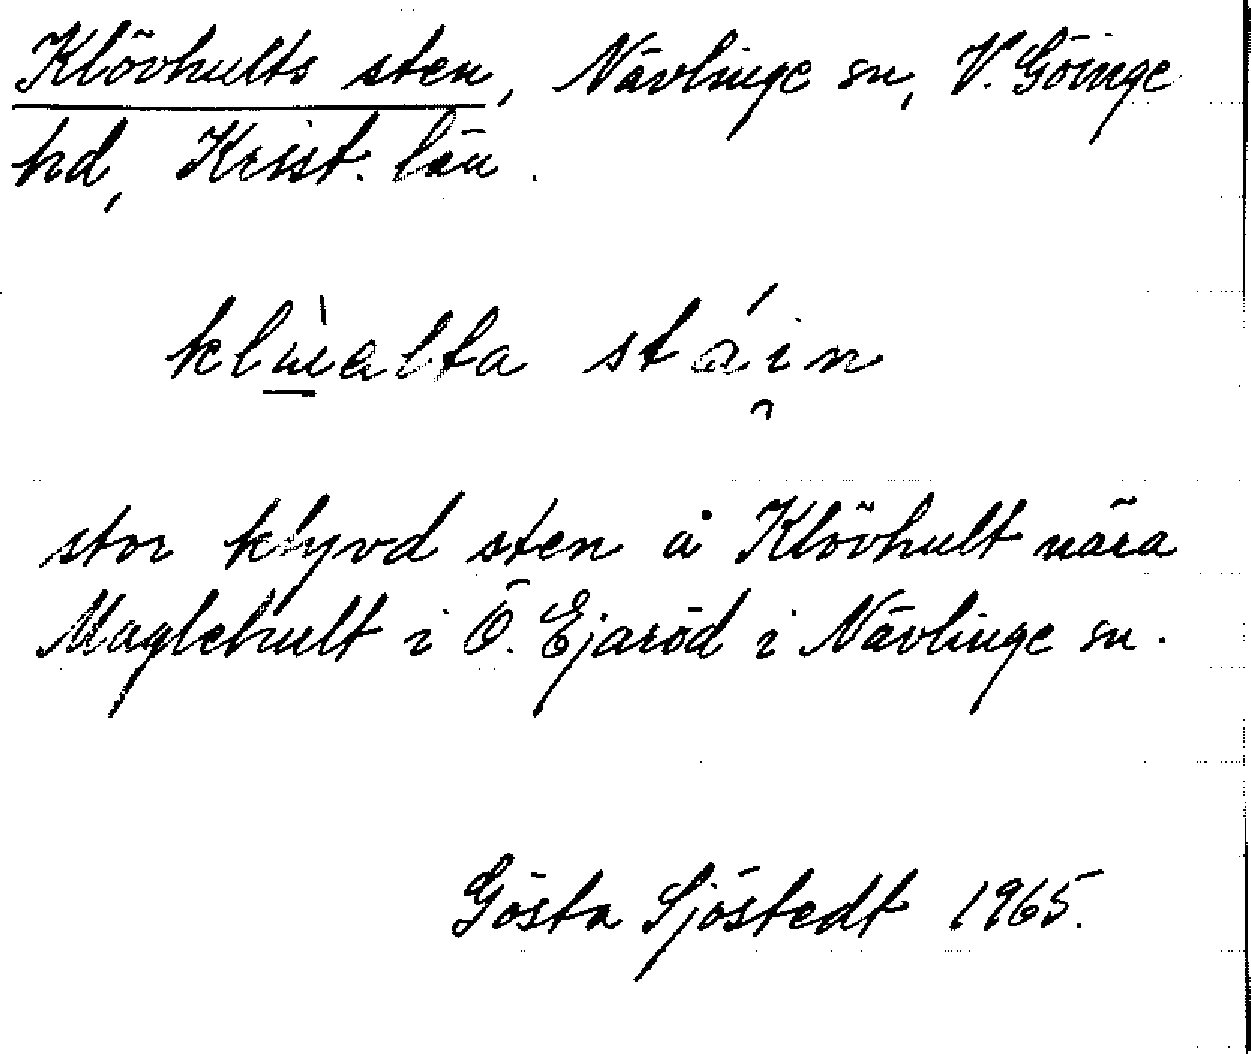 Klövhults sten, Nävlinge sn, V. Göinge
hd, Krist. län.
stáin
stor klyvd sten å Klövhult nära
Maglehult i Ö. Ejaröd i Nävlinge sn.
Gösta Sjöstedt 1965.